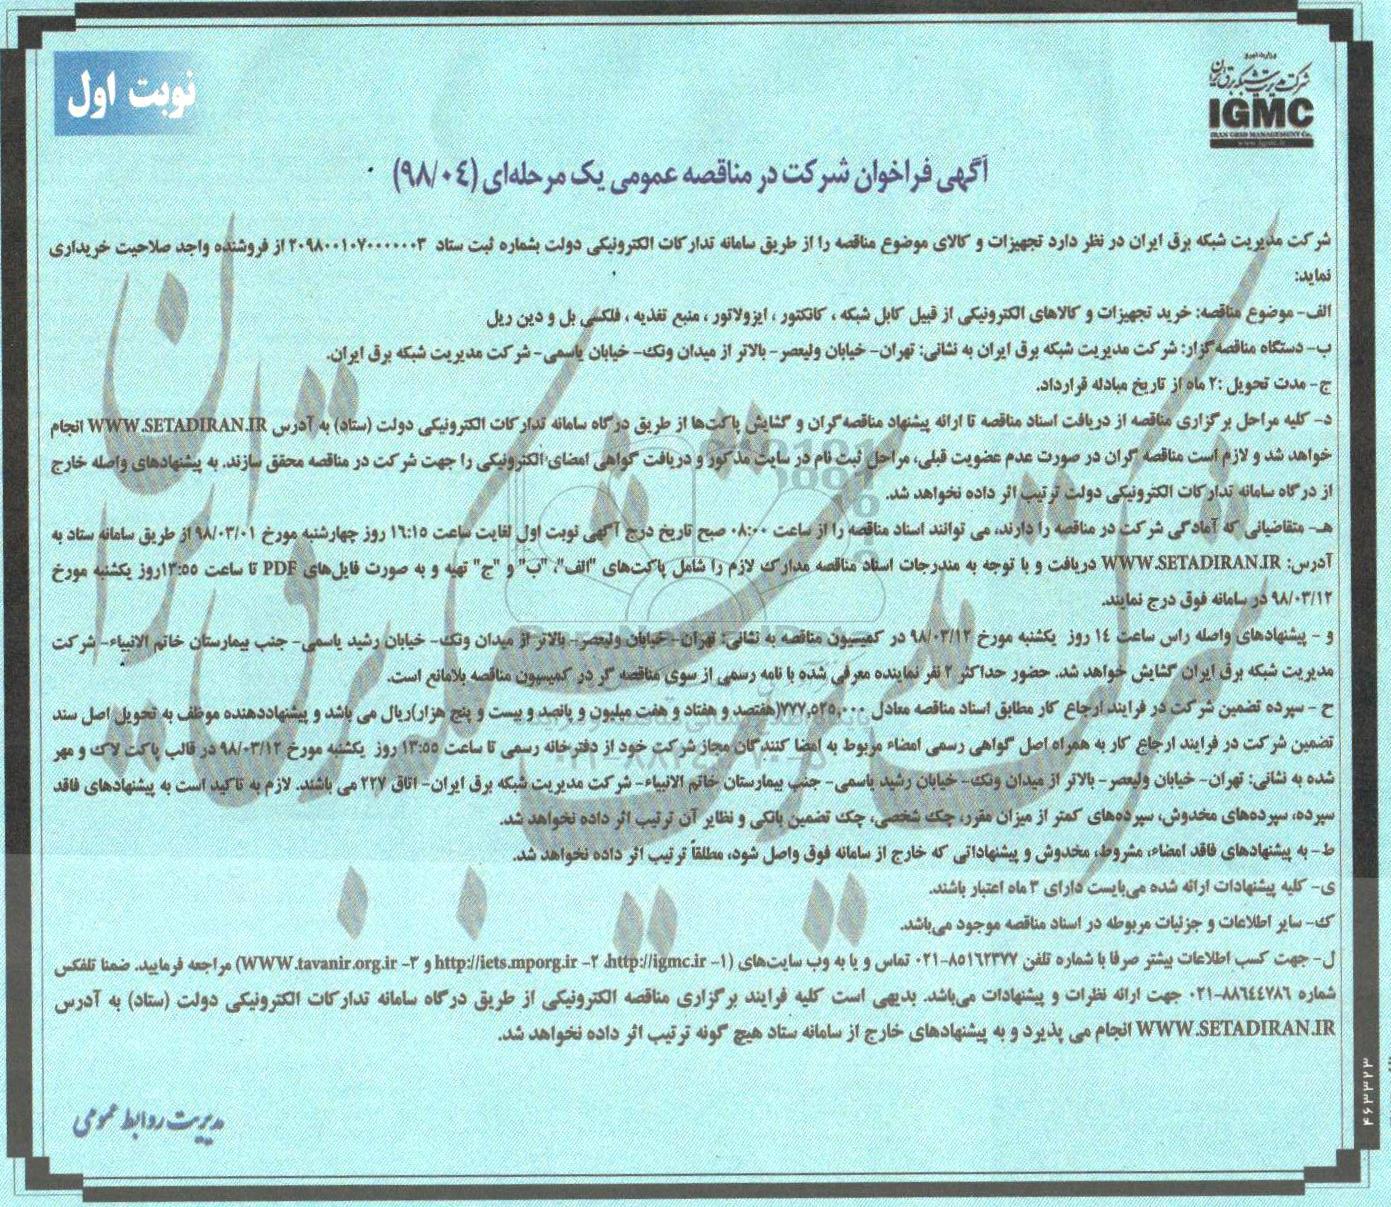 وزارت نیرو
شرکت مدیریت شبکه برق ایران
IGMC
IRAN GRID MANAGEMENT Co.
www.igmc.ir
نوبت اول
آگهی فراخوان شرکت در مناقصه عمومی یک مرحله‌ای (۹۸/۰۴)
شرکت مدیریت شبکه برق ایران در نظر دارد تجهیزات و کالای موضوع مناقصه را از طریق سامانه تدارکات الکترونیکی دولت بشماره ثبت ستاد ۲۰۹۸۰۰۱۰۷۰۰۰۰۰۰۳ از فروشنده واجد صلاحیت خریداری
نماید:
الف- موضوع مناقصه: خرید تجهیزات و کالاهای الکترونیکی از قبیل کابل شبکه ، کانکتور ، ایزولاتور ، منبع تغذیه ، فلکسی بل و دین ریل
ب- دستگاه مناقصه‌گزار: شرکت مدیریت شبکه برق ایران به نشانی: تهران- خیابان ولیعصر- بالاتر از میدان ونک- خیابان یاسمی- شرکت مدیریت شبکه برق ایران.
ج- مدت تحویل :۲ ماه از تاریخ مبادله قرارداد.
د- کلیه مراحل برگزاری مناقصه از دریافت اسناد مناقصه تا ارائه پیشنهاد مناقصه‌گران و گشایش پاکت‌ها از طریق درگاه سامانه تدارکات الکترونیکی دولت (ستاد) به آدرس WWW.SETADIRAN.IR انجام
خواهد شد و لازم است مناقصه گران در صورت عدم عضویت قبلی، مراحل ثبت نام در سایت مذکور و دریافت گواهی امضای الکترونیکی را جهت شرکت در مناقصه محقق سازند. به پیشنهادهای واصله خارج
از درگاه سامانه تدارکات الکترونیکی دولت ترتیب اثر داده نخواهد شد.
هـ- متقاضیانی که آمادگی شرکت در مناقصه را دارند، می توانند اسناد مناقصه را از ساعت ۰۸:۰۰ صبح تاریخ درج آگهی نوبت اول لغایت ساعت ۱۶:۱۵ روز چهارشنبه مورخ ۹۸/۰۳/۰۱ از طریق سامانه ستاد به
آدرس: WWW.SETADIRAN.IR دریافت و با توجه به مندرجات اسناد مناقصه مدارک لازم را شامل پاکت‌های "الف"، "ب" و "ج" تهیه و به صورت فایل‌های PDF تا ساعت ۱۳:۵۵روز یکشنبه مورخ
۹۸/۰۳/۱۲ در سامانه فوق درج نمایند.
و - پیشنهادهای واصله راس ساعت ۱۴ روز یکشنبه مورخ ۹۸/۰۳/۱۲ در کمیسیون مناقصه به نشانی: تهران- خیابان ولیعصر- بالاتر از میدان ونک- خیابان رشید یاسمی- جنب بیمارستان خاتم الانبیاء- شرکت
مدیریت شبکه برق ایران گشایش خواهد شد. حضور حداکثر ۲ نفر نماینده معرفی شده با نامه رسمی از سوی مناقصه گر در کمیسیون مناقصه بلامانع است.
ح - سپرده تضمین شرکت در فرایند ارجاع کار مطابق اسناد مناقصه معادل ۷۷۷,۵۲۵,۰۰۰(هفتصد و هفتاد و هفت میلیون و پانصد و بیست و پنج هزار)ریال می باشد و پیشنهاددهنده موظف به تحویل اصل سند
تضمین شرکت در فرایند ارجاع کار به همراه اصل گواهی رسمی امضاء مربوط به امضا کنندگان مجاز شرکت خود از دفترخانه رسمی تا ساعت ۱۳:۵۵ روز یکشنبه مورخ ۹۸/۰۳/۱۲ در قالب پاکت لاک و مهر
شده به نشانی: تهران- خیابان ولیعصر- بالاتر از میدان ونک- خیابان رشید یاسمی- جنب بیمارستان خاتم الانبیاء- شرکت مدیریت شبکه برق ایران- اتاق ۲۲۷ می باشند. لازم به تاکید است به پیشنهادهای فاقد
سپرده، سپرده‌های مخدوش، سپرده‌های کمتر از میزان مقرر، چک شخصی، چک تضمین بانکی و نظایر آن ترتیب اثر داده نخواهد شد.
ط- به پیشنهادهای فاقد امضاء، مشروط، مخدوش و پیشنهاداتی که خارج از سامانه فوق واصل شود، مطلقاً ترتیب اثر داده نخواهد شد.
ی- کلیه پیشنهادات ارائه شده می‌بایست دارای ۳ ماه اعتبار باشند.
ک- سایر اطلاعات و جزئیات مربوطه در اسناد مناقصه موجود می‌باشد.
ل- جهت کسب اطلاعات بیشتر صرفا با شماره تلفن ۸۵۱۶۲۳۷۷-۰۲۱ تماس و یا به وب سایت‌های (۱- http://igmc.ir، ۲- http://iets.mporg.ir و ۳- WWW.tavanir.org.ir) مراجعه فرمایید. ضمنا تلفکس
شماره ۸۸۶۴۴۷۸۶-۰۲۱ جهت ارائه نظرات و پیشنهادات می‌باشد. بدیهی است کلیه فرایند برگزاری مناقصه الکترونیکی از طریق درگاه سامانه تدارکات الکترونیکی دولت (ستاد) به آدرس
WWW.SETADIRAN.IR انجام می پذیرد و به پیشنهادهای خارج از سامانه ستاد هیچ گونه ترتیب اثر داده نخواهد شد.
مدیریت روابط عمومی
۴۶۳۳۲۳